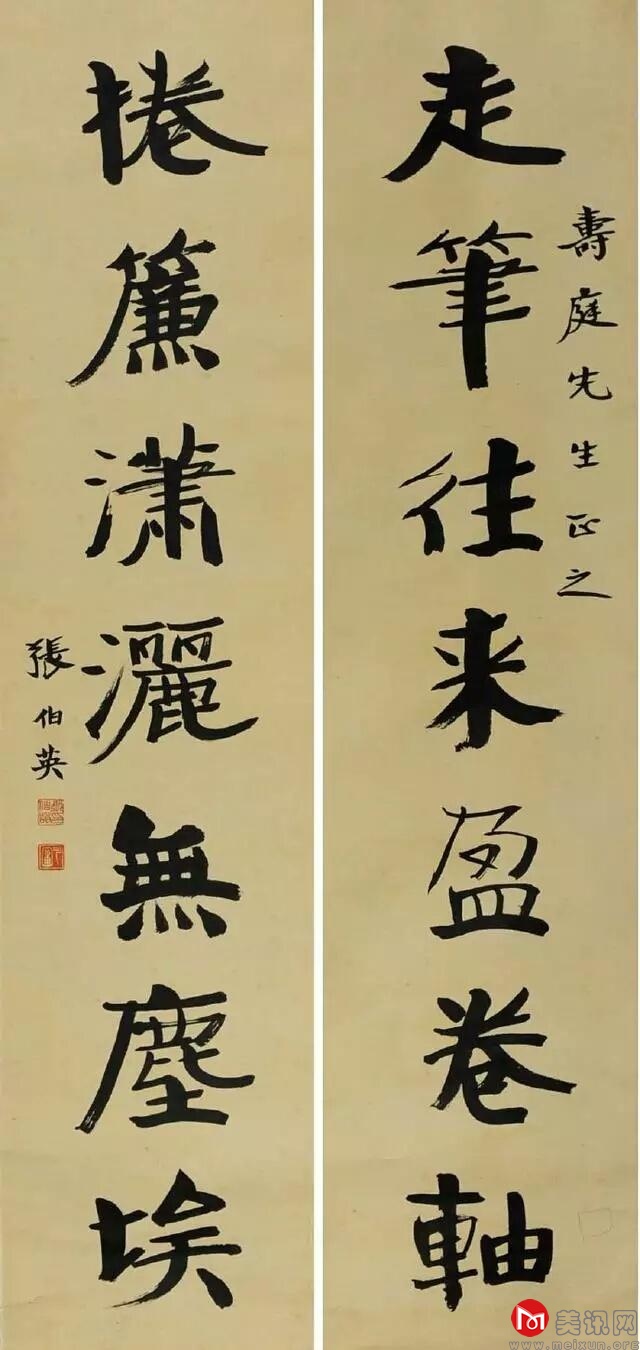 壽庭先生正之
走筆往来盈卷軸
捲簾瀟灑無塵埃
張伯英
美讯网
www.meixun.org